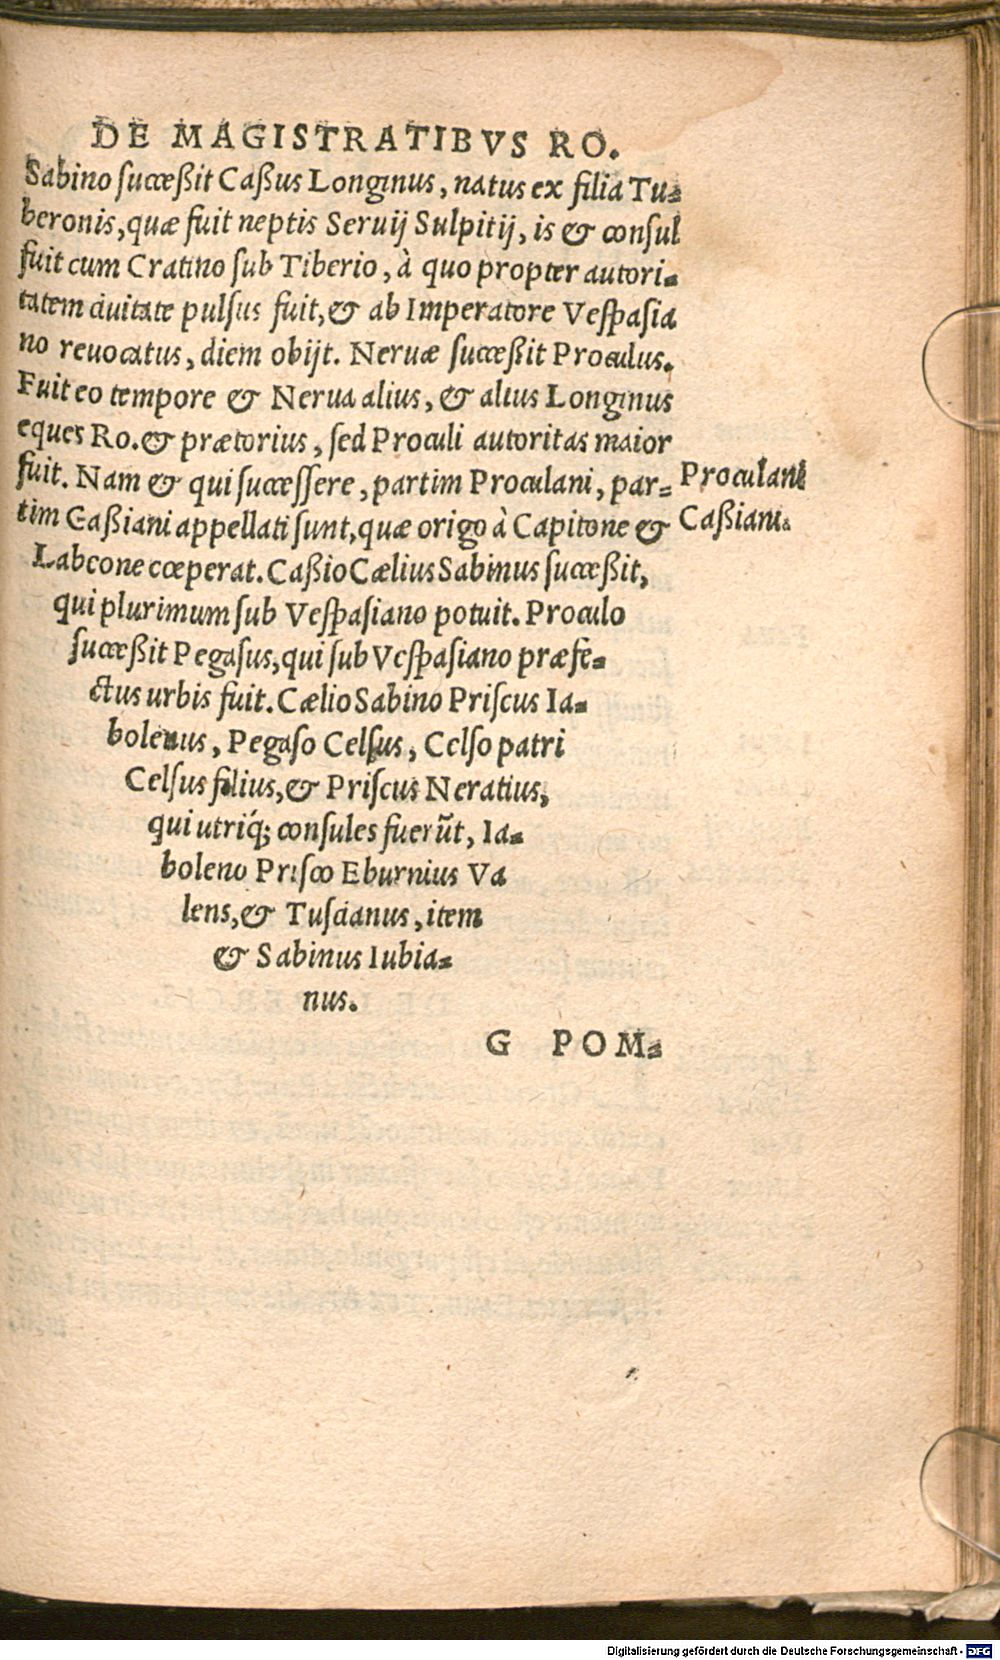 DE MAGISTRATIBVS RO.
Sabino succeßit Caßius Longinus, natus ex filia Tu-
beronis, quæ fuit neptis Seruij Sulpitij, is & consul
fuit cum Cratino sub Tiberio, à quo propter autori-
tatem ciuitate pulsus fuit, & ab Imperatore Vespasia
no reuocatus, diem obijt. Neruæ succeßit Proculus.
Fuit eo tempore & Nerua alius, & alius Longinus
eques Ro. & prætorius, sed Proculi autoritas maior
fuit. Nam & qui successere, partim Proculani, par-
tim Caßiani appellati sunt, quæ origo à Capitone &
Labeone cœperat. Caßio Cælius Sabinus succeßit,
qui plurimum sub Vespasiano potuit. Proculo
succeßit Pegasus, qui sub Vespasiano præfe-
ctus urbis fuit. Cælio Sabino Priscus Ia-
bolenus, Pegaso Celsus, Celso patri
Celsus filius, & Priscus Neratius,
qui utriq́; consules fuerũt, Ia-
boleno Prisco Eburnius Va
lens, & Tuscianus, item
& Sabinus Iubia-
nus.
Proculani
Caßiani.
G POM-
Digitalisierung gefördert durch die Deutsche Forschungsgemeinschaft - DFG